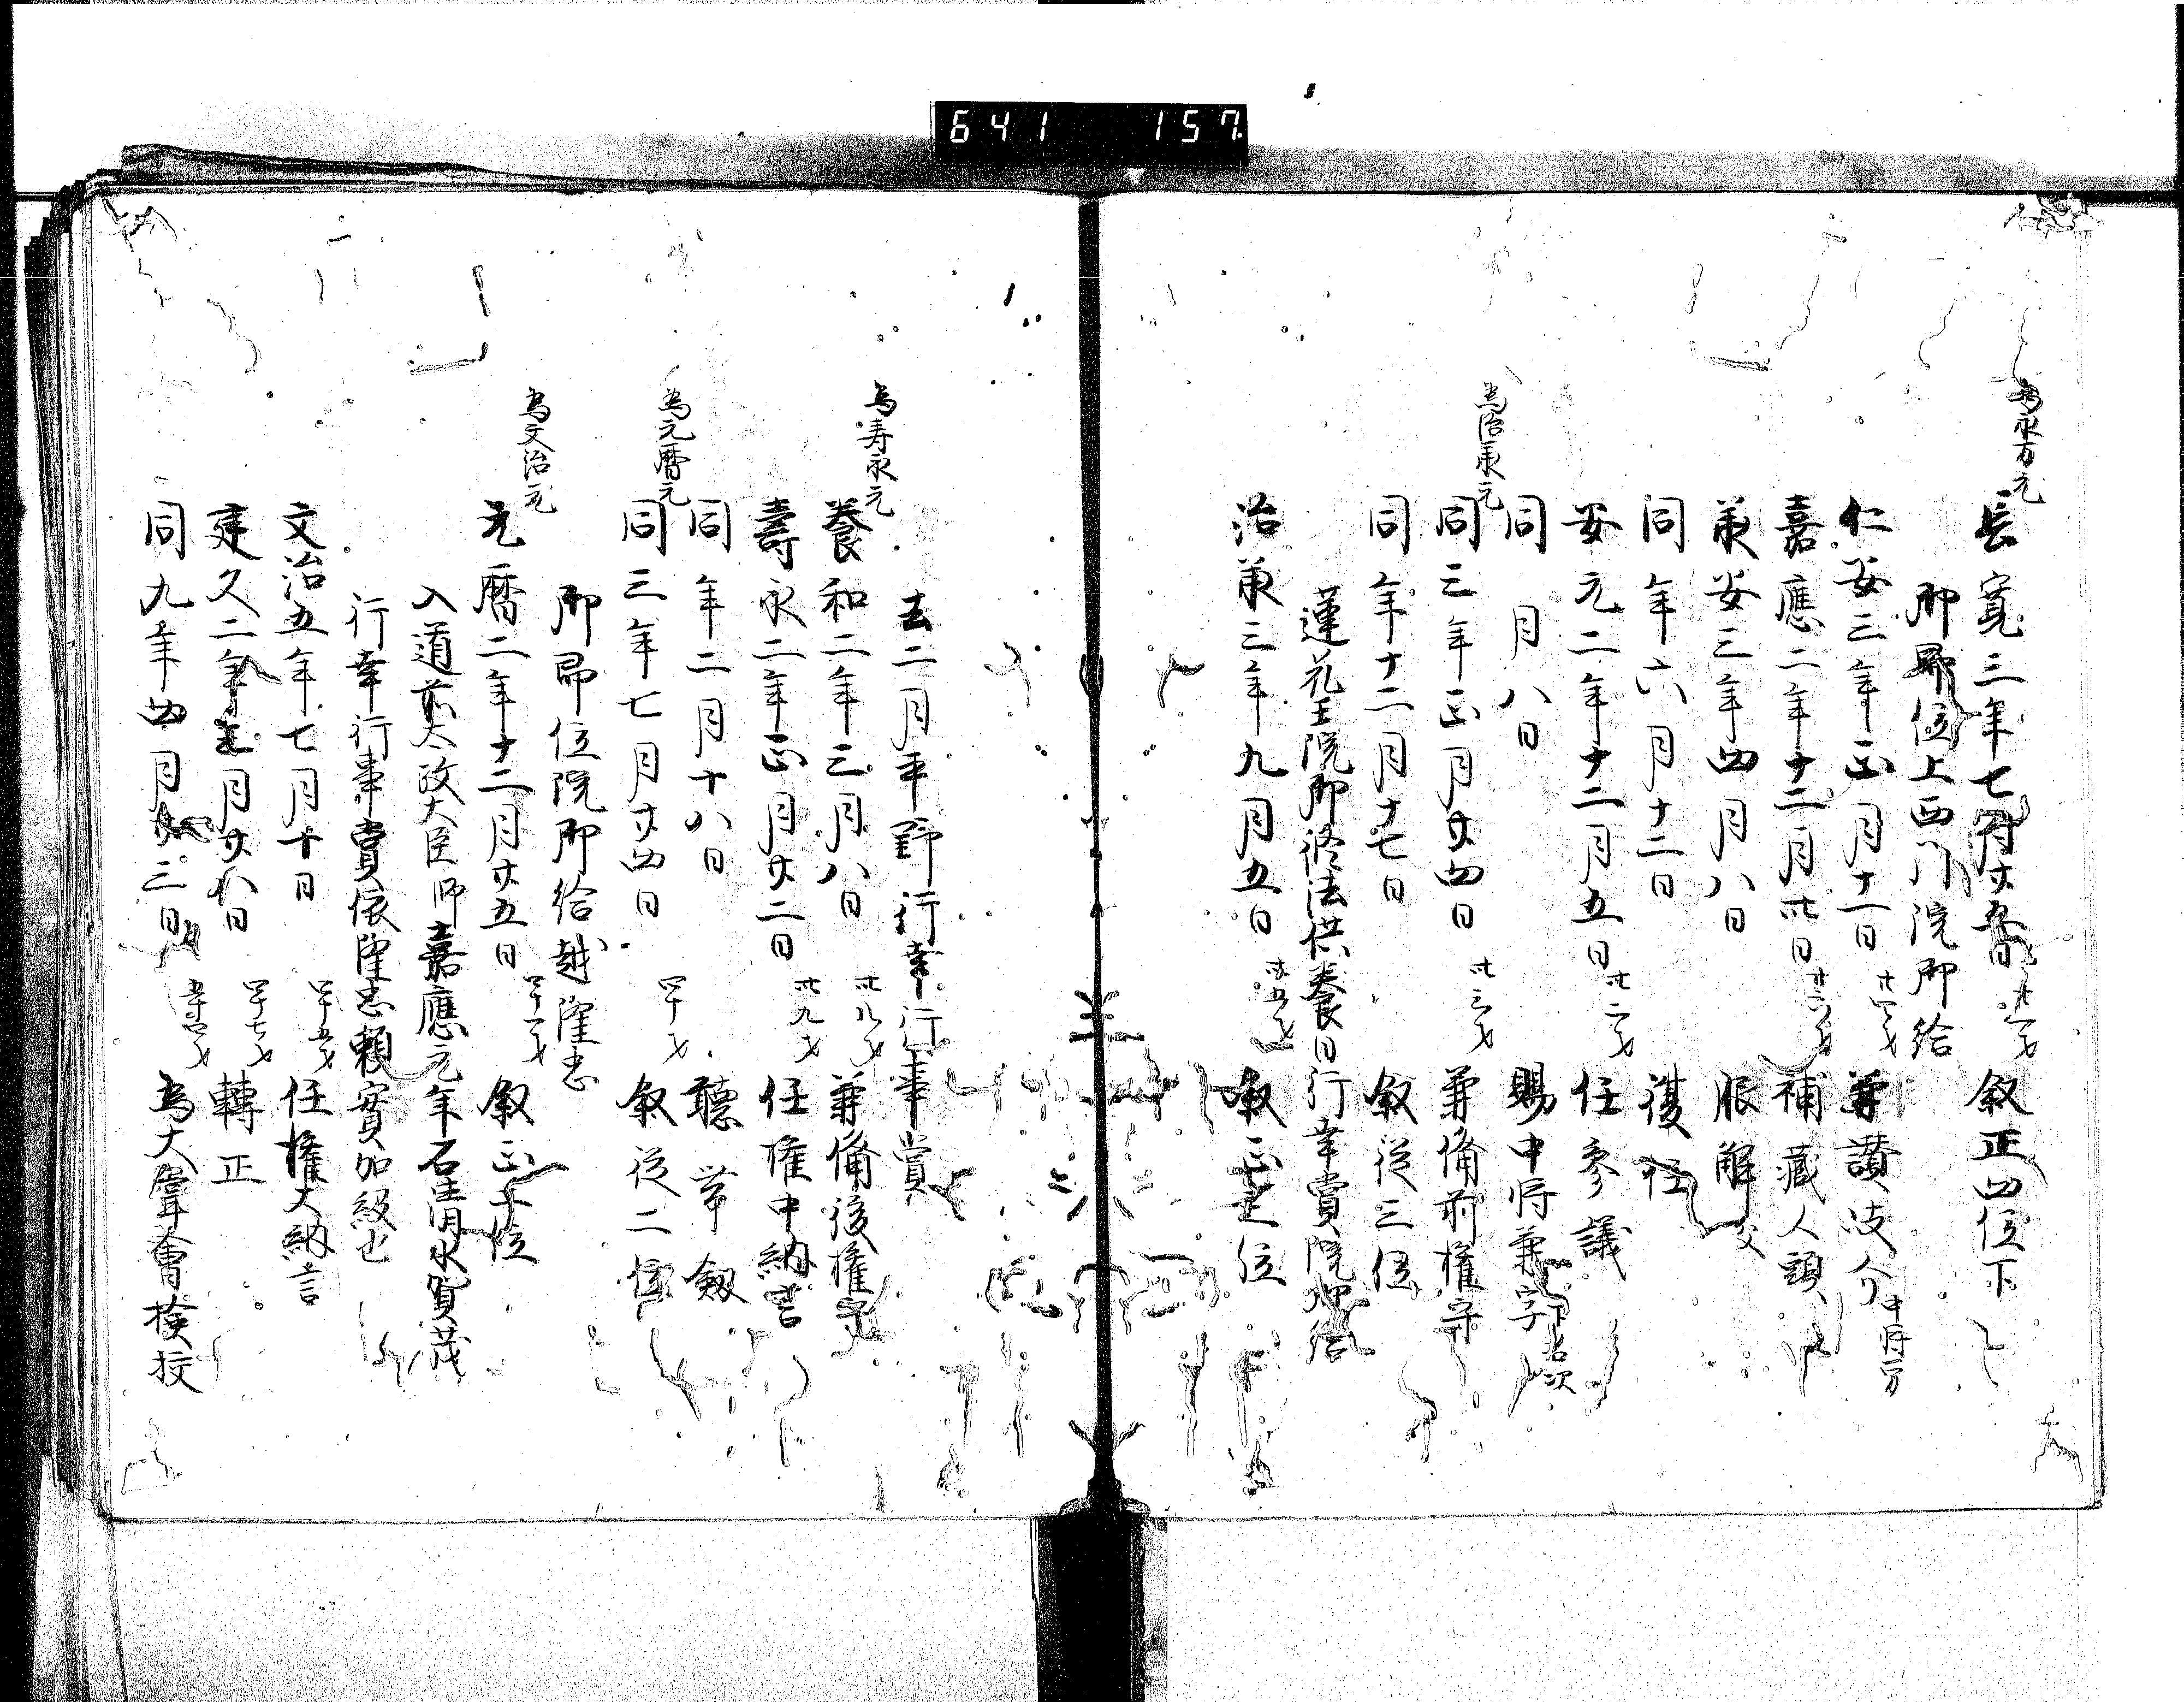 641 157
為永万元
長寛三年七月廿五日 廿一才 叙正四位下
御即位上西門院御給
仁安三年正月十一日 廿四才 兼讃岐介 中将一方
嘉應二年十二月卅日 廿六才 補蔵人頭
承安三年四月八日 服解 父
同年六月十二日 復任
安元二年十二月五日 卅二才 任参議
同月八日 賜中将兼字 下名次
為治承元
同三年正月廿四日 卅三才 兼備前権守
同年十二月十七日 叙従三位
蓮花王院御修法供養日行幸賞院御給
治承三年九月五日 卅五才 叙正三位
去二月平野行幸行事賞
為寿永元
養和二年三月八日 卅八才 兼備後権守
壽永二年正月廿二日 卅九才 任権中納言
同年二月十八日 聴帯釼
為元暦元
同三年七月廿四日 四十才 叙従二位
御即位院御給越隆忠
為文治元
元暦二年十二月廿五日 四十一才 叙正二位
入道前太政大臣師嘉應元年石清水賀茂
行幸行事賞依隆忠頼實加級也
文治五年七月十日 四十五才 任権大納言
建久二年三月廿八日 四十七才 轉正
同九年四月廿三日 五十四才 為大嘗會検校